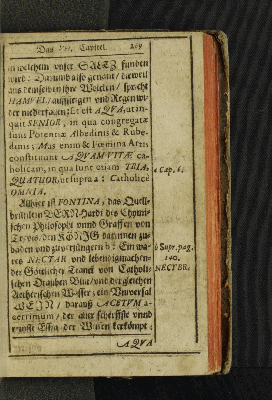 Das VII. Capitel. 219
in welchem unser SALTZ funden
wird: Darumb also genant / dieweil
aus demselben ihre Wolcken / spricht
HAMVEL / auffsteigen und Regen wi-
der niederfallen: Et est AQVA, ut in-
quit SENIOR, in qua congregatæ
sunt Potentiæ Albedinis & Rube-
dinis; Mas enim & Fœmina Artis
constituunt AQVAM VITÆ ca-
tholicam, in qua sunt etiam TRIA,
QUATUOR, ut supra a: Catholicè
OMNIA.
Allhier ist FONTINA, das Quell-
brünlein BERNHardi des Chymi-
schen Philosophi unnd Graffen von
Trevis, den KÖNIG darinnen zu-
baden und zuverjüngern b: Ein wa-
res NECTAR und lebendigmachen-
der Göttlicher Tranck von Catholi-
schen Trauben Blut / und dergleichen
Aetherischen Wasser; ein Universal
WEIN / darauß ACETUM a-
cerrimum / der aller scherffste unnd
Essig der Weisen
AQVA
a Cap. 6.
b Supr. pag.
140.
NECTER.